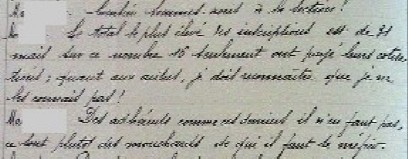 Me combien sommes-nous à la section!
Me Le total le plus élevé des inscriptions est de 31
mais sur ce nombre 16 seulement ont payé leurs cotisa-
tions; quant aux autres, je dois reconnaitre que je ne
les connais pas!
Me Des adhérents comme ces derniers il n'en faut pas,
ce sont plutôt des mouchards et qui il faut se méfier.